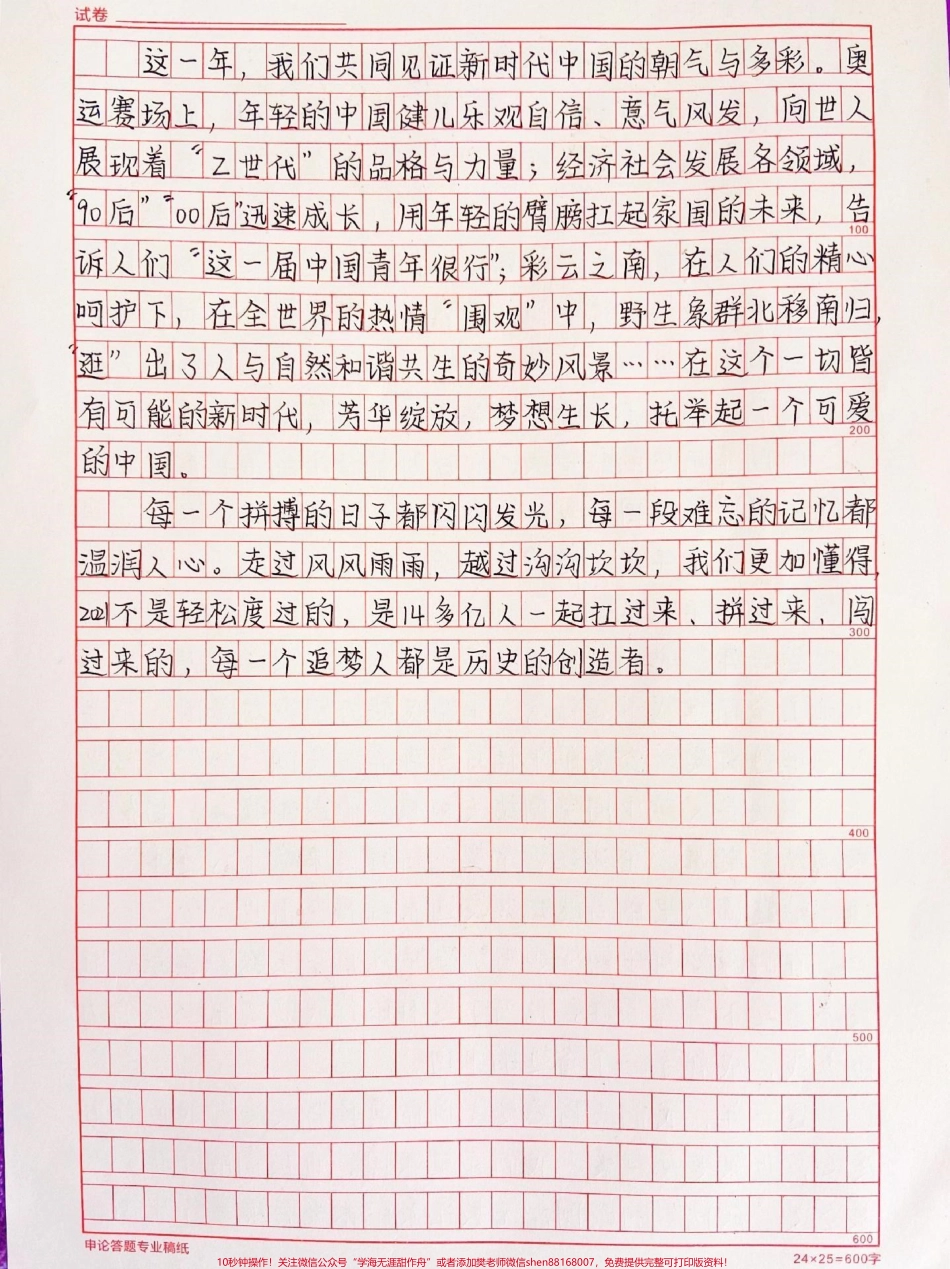 试卷
这一年，我们共同见证新时代中国的朝气与多彩。奥
运赛场上，年轻的中国健儿乐观自信、意气风发，向世人
展现着“Z世代”的品格与力量；经济社会发展各领域，
“90后”“00后”迅速成长，用年轻的臂膀扛起家国的未来，告
100
诉人们“这一届中国青年很行”；彩云之南，在人们的精心
呵护下，在全世界的热情“围观”中，野生象群北移南归，
“逛”出了人与自然和谐共生的奇妙风景……在这个一切皆
有可能的新时代，芳华绽放，梦想生长，托举起一个可爱
200
的中国。
每一个拼搏的日子都闪闪发光，每一段难忘的记忆都
温润人心。走过风风雨雨，越过沟沟坎坎，我们更加懂得，
2021不是轻松度过的，是14多亿人一起扛过来、拼过来、闯
300
过来的，每一个追梦人都是历史的创造者。
400
500
600
申论答题专业稿纸
24×25=600字
10秒钟操作！关注微信公众号“学海无涯甜作舟”或者添加樊老师微信shen88168007，免费提供完整可打印版资料！